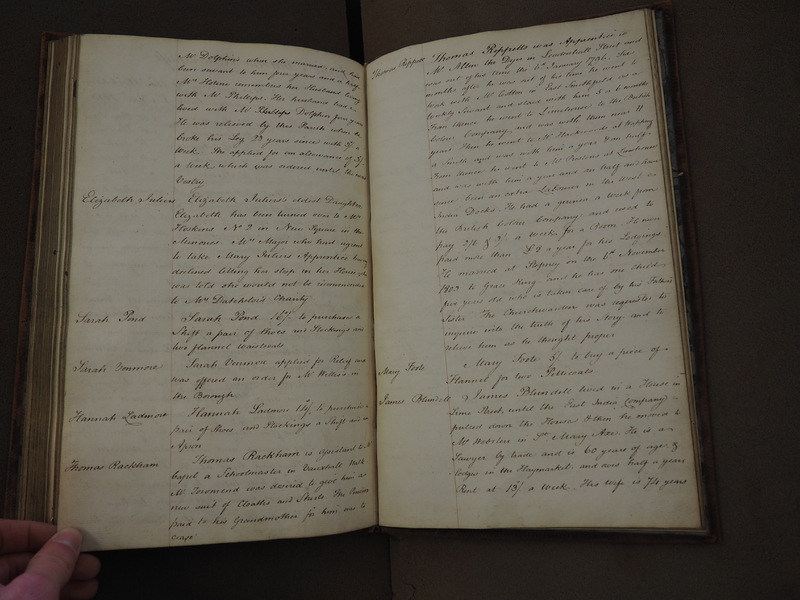 Mr Dolphins when she married, and had
been servant to him four years and a half.
Mrs Holme remembers her Husband living
with Mr Phillips. Her husband had
lived with Mr Phillips Dolphin four years
He was relieved by this Parish when he
broke his Leg 23 years since with 5/ a
Week. She applied for an allowance of 5/
a week which was ordered until the next
Vestry
Elizabeth Juliers Elizabeth Juliers's eldest Daughter
Elizabeth has been turned over to Mrs
Hoskins No 2 in New Square in the
Minories. Mrs Major who had agreed
to take Mary Juliers Apprentice having
declined letting her sleep in her House, she
was told she would not be recommended
to Mrs Datchelor's Charity
Sarah Pond Sarah Pond 16/ to purchase a
Shift a pair of Shoes and Stockings and
two flannel waistcoats
Sarah Venmore Sarah Venmore applied for Relief and
was offered an order for Mr Willis's in
the Borough
Hannah Ladmore Hannah Ladmore 14/ to purchase a
pair of Shoes and Stockings a Shift and an
Apron
Thomas Rackham Thomas Rackham is assistant to Mr
a Schoolmaster in Vauxhall Walk
Mr Townsend was desired to give him a
new suit of Cloaths and Shirts The Pension
paid to his Grandmother for him was to
cease
Thomas Rippell Thomas Rippells was Apprentice to
Mr Allen the Dyer in Leadenhall Street and
was out of his time the 6th January 1796. Six
months after he was out of his time he went to
work with Mr Cotton in East Smithfield as a
Weekly Servant and staid with him 5 a 6 months
From thence he went to Limehouse to the British
Colour Company and was with them near 11
years Then he went to Mr at Wapping
a Smith and was with him a year & an half
From thence he went to Mr Prestons at Limehouse
and was with him a year and an half and has
since been an extra Labourer in the West
India Docks. He had a guinea a week from
the British Colour Company and used to
pay 2/6 & 3/ a week for a Room. He never
paid more than £8 a year for his Lodgings
He married at Stepney on the 6th November
1803 to Grace King and he has one child
five years old who is taken care of by his Father's
Sister The Churchwarden was requested to
inquire into the truth of his Story and to
relieve him as he thought proper
Mary Foote Mary Foote 5/ to buy a piece of
Flannel for two Petticoats
James Blundell James Blundell lived in a House in
Lime Street until the East India Company
pulled down the House & then he moved to
Mr Websters in St Mary Axe. He is a
Sawyer by trade and is 60 years of age, &
lodges in the Haymarket and owes half a years
Rent at 13/ a week. His wife is 74 years